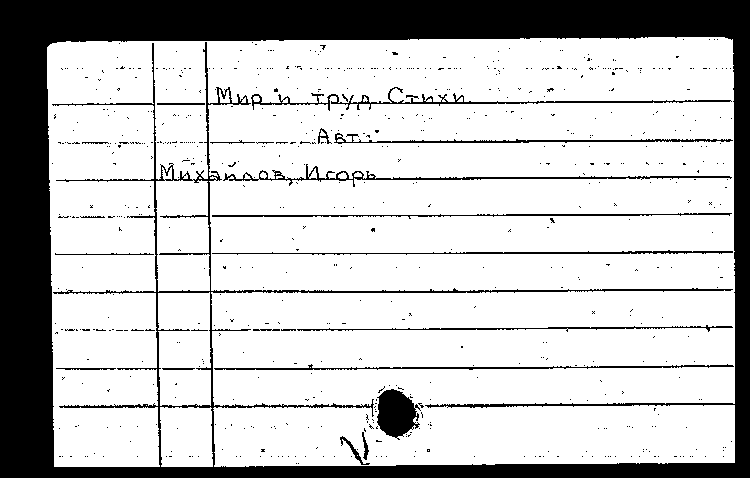 Мир и труд Стихи
Авт.:
Михайлов, Игорь
V